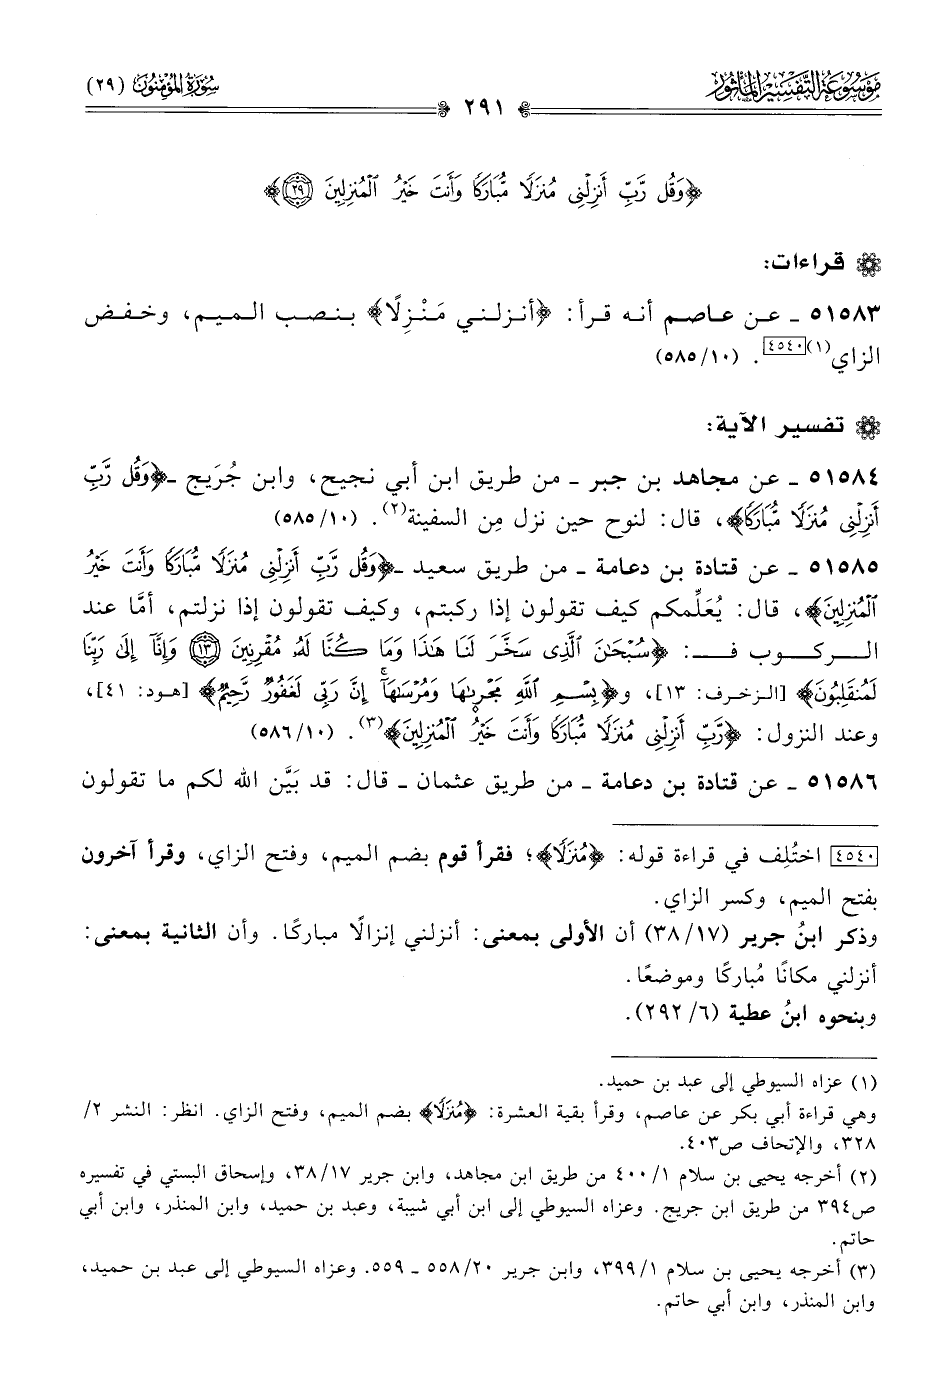 موسوعة التفسير المأثور
٢٩١
سورة المؤمنون (٢٩)
﴿وَقُل رَّبِّ أَنزِلْنِى مُنزَلًا مُّبَارَكًا وَأَنتَ خَيْرُ ٱلْمُنزِلِينَ ٢٩﴾
قراءات:
٥١٥٨٣ ـ عـن عاصـم أنـه قـرأ: ﴿أنـزلـنـي مَـنْـزِلًا﴾ بـنـصـب الـمـيـم، وخـفـض
الزاي(١)[٤٥٤٠]. (١٠/ ٥٨٥)
تفسير الآية:
٥١٥٨٤ ـ عن مجاهد بن جبر ـ من طريق ابن أبي نجيح، وابن جُرَيج ـ ﴿وَقُل رَّبِّ
أَنزِلْنِى مُنزَلًا مُّبَارَكًا﴾، قال: لنوح حين نزل مِن السفينة(٢). (١٠/ ٥٨٥)
٥١٥٨٥ ـ عن قتادة بن دعامة ـ من طريق سعيد ـ ﴿وَقُل رَّبِّ أَنزِلْنِى مُنزَلًا مُّبَارَكًا وَأَنتَ خَيْرُ
ٱلْمُنزِلِينَ﴾، قال: يُعَلِّمكم كيف تقولون إذا ركبتم، وكيف تقولون إذا نزلتم، أمَّا عند
الـركـوب فـ: ﴿سُبْحَٰنَ ٱلَّذِى سَخَّرَ لَنَا هَٰذَا وَمَا كُنَّا لَهُۥ مُقْرِنِينَ ١٣ وَإِنَّآ إِلَىٰ رَبِّنَا
لَمُنقَلِبُونَ﴾ [الزخرف: ١٣]، و﴿بِسْمِ ٱللَّهِ مَجْر۪ىٰهَا وَمُرْسَىٰهَآ إِنَّ رَبِّى لَغَفُورٌ رَّحِيمٌ﴾ [هود: ٤١]،
وعند النزول: ﴿رَّبِّ أَنزِلْنِى مُنزَلًا مُّبَارَكًا وَأَنتَ خَيْرُ ٱلْمُنزِلِينَ﴾(٣). (١٠/ ٥٨٦)
٥١٥٨٦ ـ عن قتادة بن دعامة ـ من طريق عثمان ـ قال: قد بَيَّن الله لكم ما تقولون
[٤٥٤٠] اختُلِف في قراءة قوله: ﴿مُنزَلًا﴾؛ فقرأ قوم بضم الميم، وفتح الزاي، وقرأ آخرون
بفتح الميم، وكسر الزاي.
وذكر ابنُ جرير (١٧/ ٣٨) أن الأولى بمعنى: أنزلني إنزالًا مباركًا. وأن الثانية بمعنى:
أنزلني مكانًا مُباركًا وموضعًا.
وبنحوه ابنُ عطية (٦/ ٢٩٢).
(١) عزاه السيوطي إلى عبد بن حميد.
وهي قراءة أبي بكر عن عاصم، وقرأ بقية العشرة: ﴿مُنزَلًا﴾ بضم الميم، وفتح الزاي. انظر: النشر ٢/
٣٢٨، والإتحاف ص٤٠٣.
(٢) أخرجه يحيى بن سلام ١/ ٤٠٠ من طريق ابن مجاهد، وابن جرير ١٧/ ٣٨، وإسحاق البستي في تفسيره
ص٣٩٤ من طريق ابن جريج. وعزاه السيوطي إلى ابن أبي شيبة، وعبد بن حميد، وابن المنذر، وابن أبي
حاتم.
(٣) أخرجه يحيى بن سلام ١/ ٣٩٩، وابن جرير ٢٠/ ٥٥٨ ـ ٥٥٩. وعزاه السيوطي إلى عبد بن حميد،
وابن المنذر، وابن أبي حاتم.